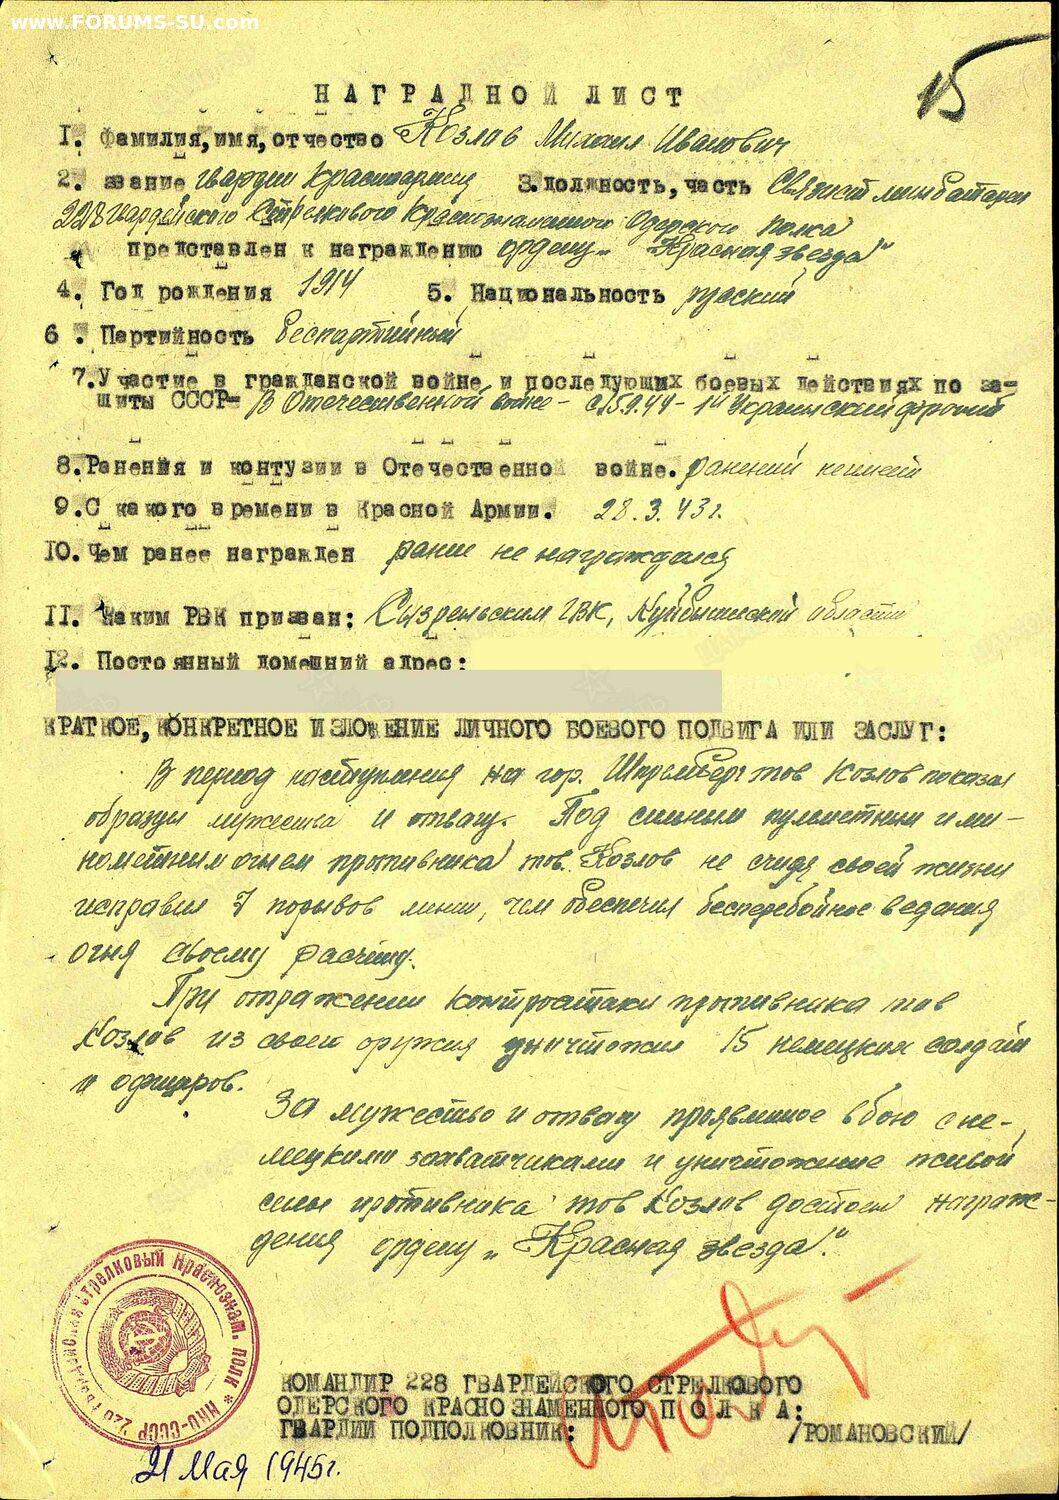 www.FORUMS-SU.com
15
НАГРАДНОЙ ЛИСТ
I. Фамилия, имя, отчество Козлов Михаил Иванович
2. звание гвардии Красноармеец 3. должность, часть Связист минбатареи
228 гвардейского Стрелкового Краснознаменного Одерского полка
представлен к награждению ордену „Красная звезда"
4. Год рождения 1914 5. Национальность русский
6. Партийность беспартийный
7. Участие в гражданской войне и последующих боевых действиях по за-
щиты СССР- В Отечественной войне - с 15.9.44 - 1й Украинский фронт
8. Ранения и контузии в Отечественной войне. ранений не имеет
9. С какого времени в Красной Армии. 28.3.43 г.
10. Чем ранее награжден ранее не награждался
II. Каким РВК призван: Сызрельским ГВК, Куйбышевской области
12. Постоянный домашний адрес:
КРАТКОЕ, КОНКРЕТНОЕ ИЗЛОЖЕНИЕ ЛИЧНОГО БОЕВОГО ПОДВИГА ИЛИ ЗАСЛУГ:
В период наступления на гор. Шпремберг тов Козлов показал
образцы мужества и отвагу. Под сильным пулеметным и ми-
нометным огнем противника тов. Козлов не щадя своей жизни
исправил 7 порывов линии, чем обеспечил бесперебойное ведения
огня своему расчету.
При отражении контратаки противника тов
Козлов из своего оружия уничтожил 15 немецких солдат
и офицеров.
За мужество и отвагу проявленное в бою с не-
мецкими захватчиками и уничтожение живой
силы противника тов Козлов достоен награж-
дения ордену „Красная звезда".
КОМАНДИР 228 ГВАРДЕЙСКОГО СТРЕЛКОВОГО
ОДЕРСКОГО КРАСНОЗНАМЕННОГО ПОЛКА:
ГВАРДИИ ПОДПОЛКОВНИК: /РОМАНОВСКИЙ/
стрелковый Краснознам. полк * НКО-СССР
21 Мая 1945г.